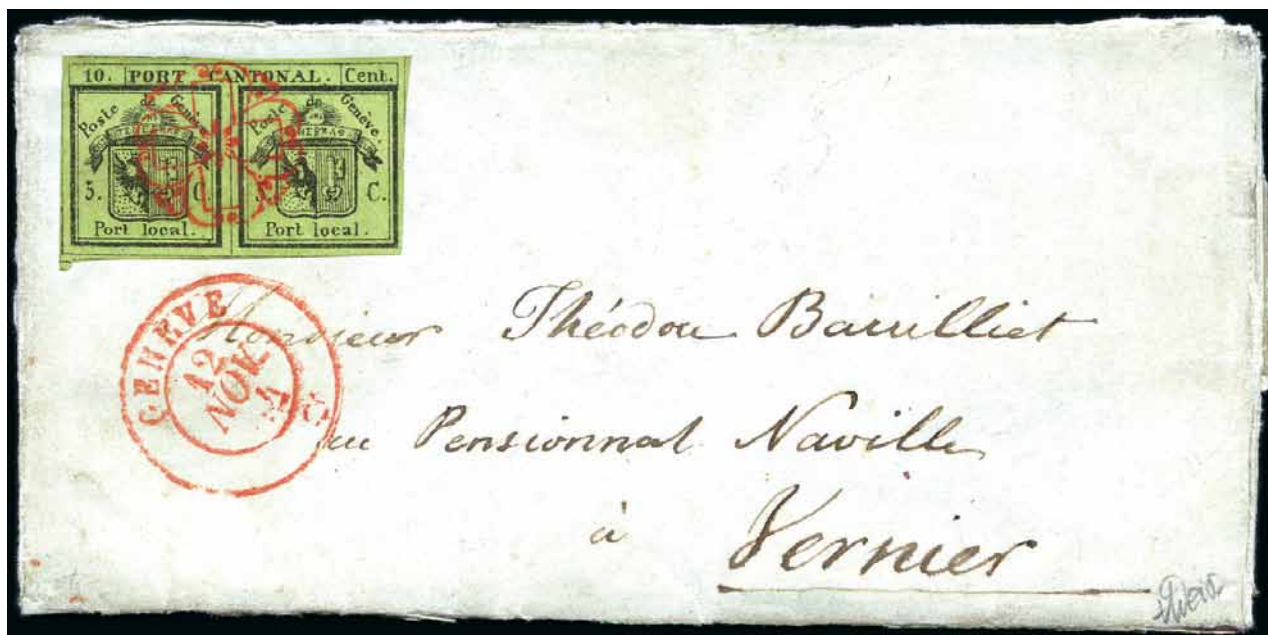 10. PORT CANTONAL. Cent.
Poste de Genève. Poste de Genève.
5. C. 5. C.
Port local. Port local.
GENEVE
12
NOV.
Monsieur Théodore Barrilliet
au Pensionnat Naville
à Vernier